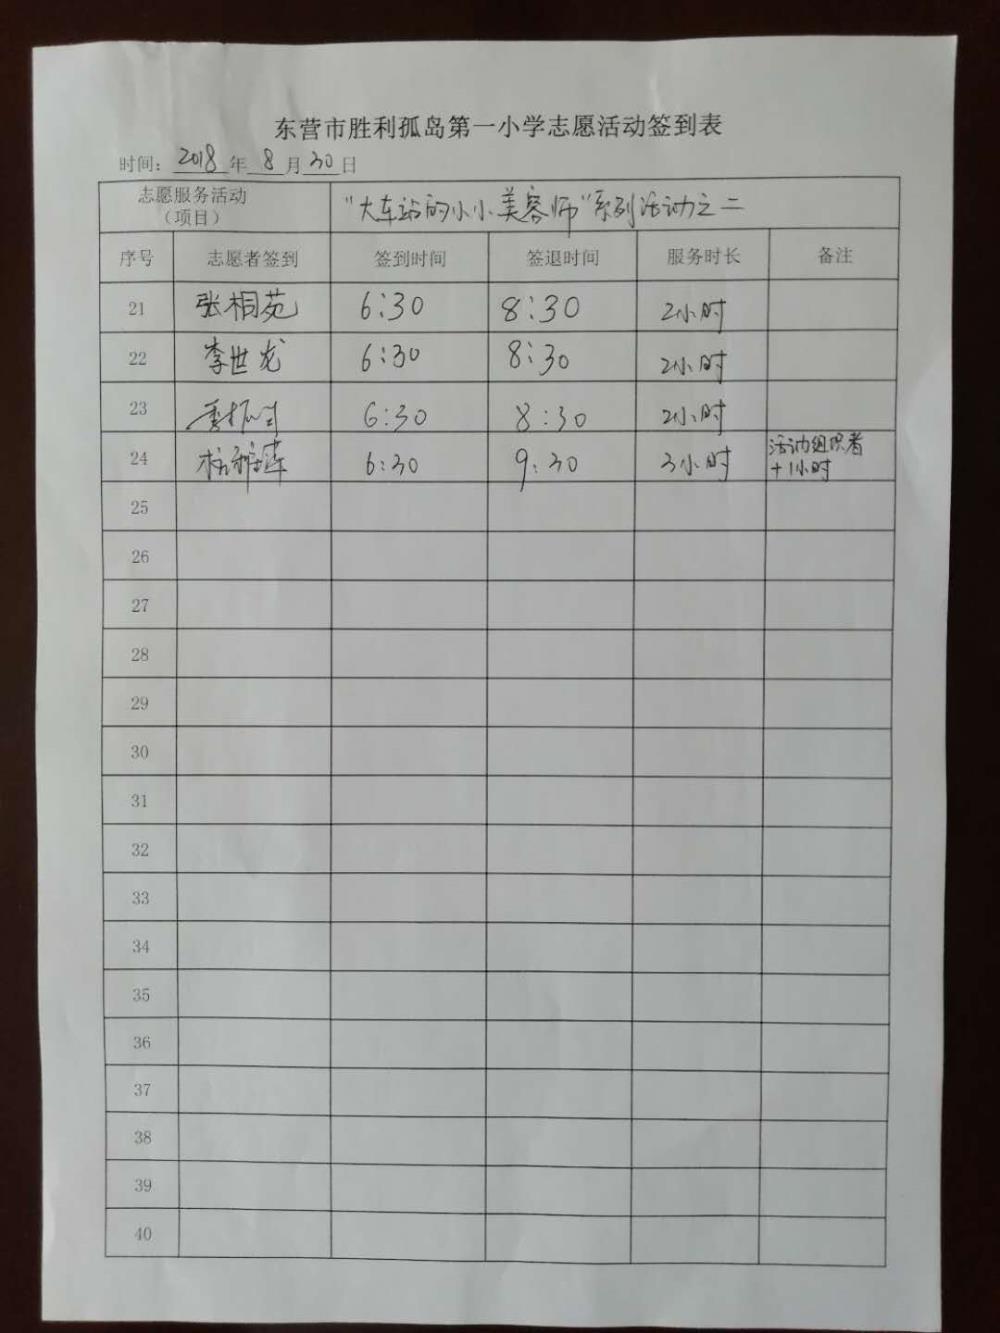 东营市胜利孤岛第一小学志愿活动签到表
时间：2018年8月30日
志愿服务活动（项目） "大车站的小小美容师"系列活动之二
序号 志愿者签到 签到时间 签退时间 服务时长 备注
21 张相苑 6:30 8:30 2小时
22 李世龙 6:30 8:30 2小时
23 6:30 8:30 2小时
24 6:30 9:30 3小时 活动组织者+1小时
25
26
27
28
29
30
31
32
33
34
35
36
37
38
39
40